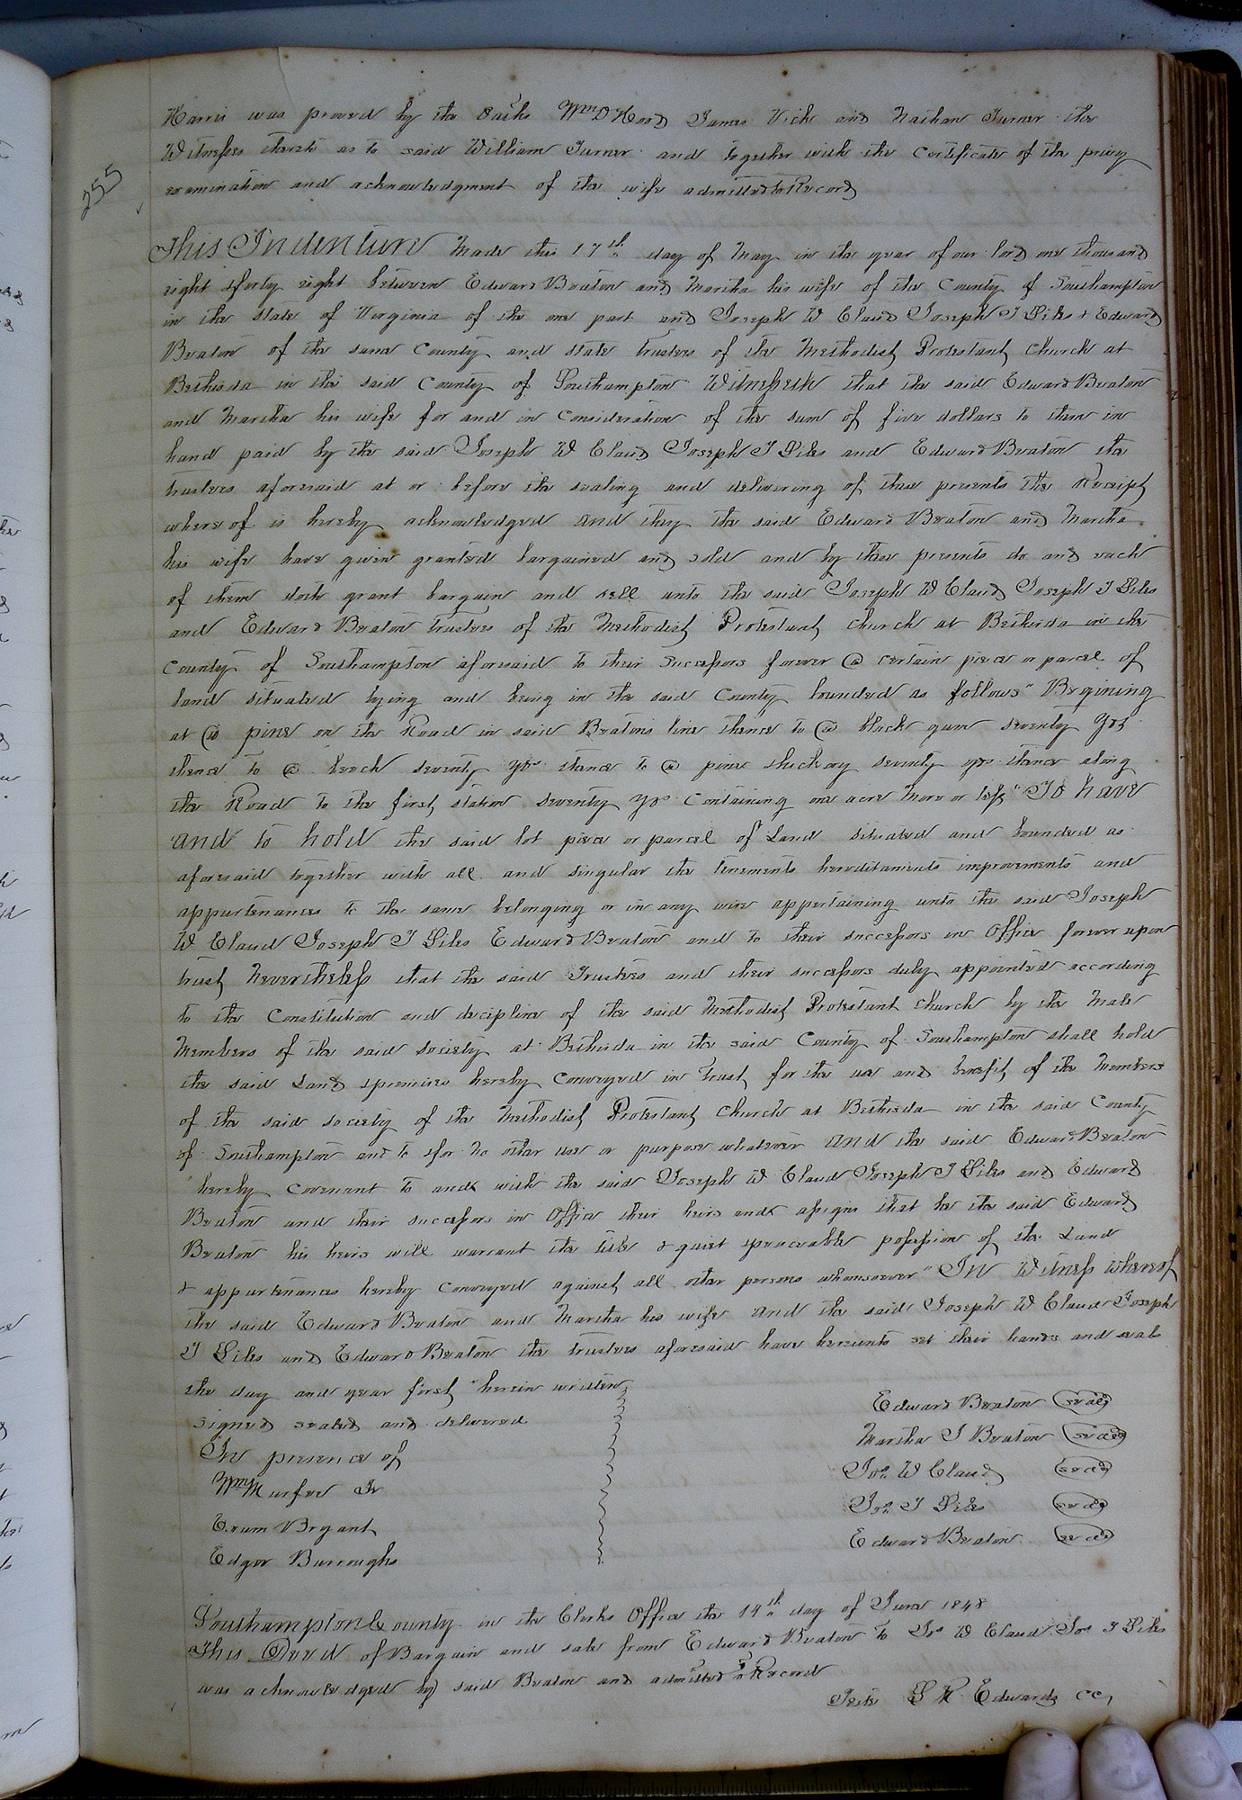 Harris was proved by the Oaths Wm D Hood James Vick and Nathan Turner the
Witnesses thereto as to said William Turner and together with the Certificate of the privy
examination and acknowledgment of the wife admitted to Record
255
This Indenture Made this 17th day of May in the year of our lord one thousand
eight & forty eight between Edward Beaton and Martha his wife of the County of Southampton
in the State of Virginia of the one part and Joseph W Claud Joseph T Liles & Edward
Beaton of the same County and state trustees of the Methodist Protestant Church at
Bethesda in the said County of Southampton Witnesseth that the said Edward Beaton
and Martha his wife for and in Consideration of the sum of five dollars to them in
hand paid by the said Joseph W Claud Joseph T Liles and Edward Beaton the
trustees aforesaid at or before the sealing and delivering of these presents the Receipt
where of is hereby acknowledged and they the said Edward Beaton and Martha
his wife have given granted bargained and sold and by these presents do and each
of them doth grant bargain and sell unto the said Joseph W Claud Joseph T Liles
and Edward Beaton trustees of the Methodist Protestant church at Bethesda in the
County of Southampton aforesaid to their successors forever @ certain piece or parcel of
land situated lying and being in the said County bounded as follows" Begining
at @ pine on the Road in said Beatons line thence to @ black gum seventy yds
thence to @ beech seventy yds thence to @ pine & hickory seventy yds thence along
the Road to the first station seventy yds Containing one acre more or less" To have
and to hold the said lot piece or parcel of Land situated and bounded as
aforesaid together with all and singular the tenements hereditaments improvements and
appurtenances to the same belonging or in any wise appertaining unto the said Joseph
W Claud Joseph T Liles Edward Beaton and to their successors in Office forever upon
trust Nevertheless that the said Trustees and their successors duly appointed according
to the Constitution and decipline of the said Methodist Protestant Church by the Male
Members of the said society at Bethesda in the said County of Southampton shall hold
the said Land & premises hereby Conveyed in trust for the use and benefit of the Members
of the said society of the Methodist Protestant Church at Bethesda in the said County
of Southampton and to & for no other use or purpose whatever And the said Edward Beaton
hereby Covenant to and with the said Joseph W Claud Joseph T Liles and Edward
Beaton and their successors in Office their heirs and assigns that he the said Edward
Beaton his heirs will warrant the title & quiet & peaceable possession of the Land
& appurtenances hereby Conveyed against all other persons whomsoever" In Witness Whereof
the said Edward Beaton and Martha his wife and the said Joseph W Claud Joseph
T Liles and Edward Beaton the trustees aforesaid have hereunto set their hands and seals
the day and year first herein written
Signed sealed and delivered
In presence of
Wm Murfee Jr
Exum Bryant
Edgar Burroughs
Edward Beaton seal
Martha J Beaton seal
Jos W Claud seal
Jos T Liles seal
Edward Beaton seal
Southampton County in the Clerks Office the 14th day of June 1848
This Deed of Bargain and sale from Edward Beaton to Jos W Claud Jos T Liles
was acknowledged by said Beaton and admitted to Record
Teste L R Edwards CC